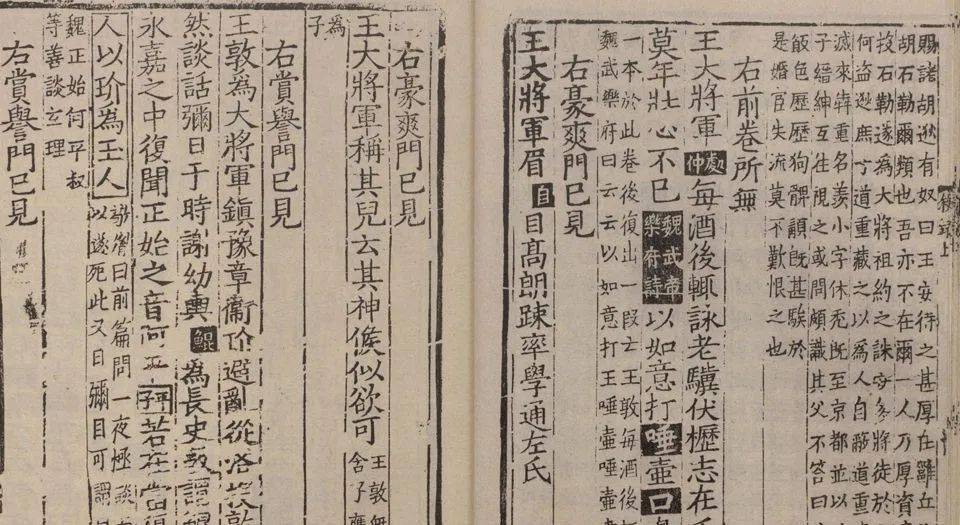 賜諸胡逖有奴曰王安待之甚厚在雝丘
胡石勒爾類也吾亦不在爾一人乃厚資
投石勒遂為大將祖約之誅安多將徒於
何盗逖庶子道重藏之以為人自道重
滅來犇重名羨小字休禿既至京都並以
子縉紳互往視之或問頗識其父不答曰
飯色歷歷狗髀頭既甚駭於
是婚宦失流莫不歎恨之也
右前卷所無
王大將軍敦仲每酒後輒詠老驥伏櫪志在
莫年壯心不巳魏武帝樂府詩以如意打唾壺口
一本於此卷後復出一段云王敦每酒後
魏武樂府曰云云以如意打王唾壺唾壺
右豪爽門已見
王大將軍眉自目高朗踈率學通左氏
後錄上
右豪爽門已見
王大將軍稱其兒云其神候似欲可王敦無含子應
為子
右賞譽門已見
王敦為大將軍鎮豫章衞玠避亂從洛投敦
然談話彌日于時謝幼輿鯤為長史敦謂鯤
永嘉之中復聞正始之音阿平稱若在當復
人以玠為玉人
玠別傳曰前篇問一夜極談
以遂死此又曰彌日可謂
魏正始何平叔
等善談玄理
右賞譽門已見